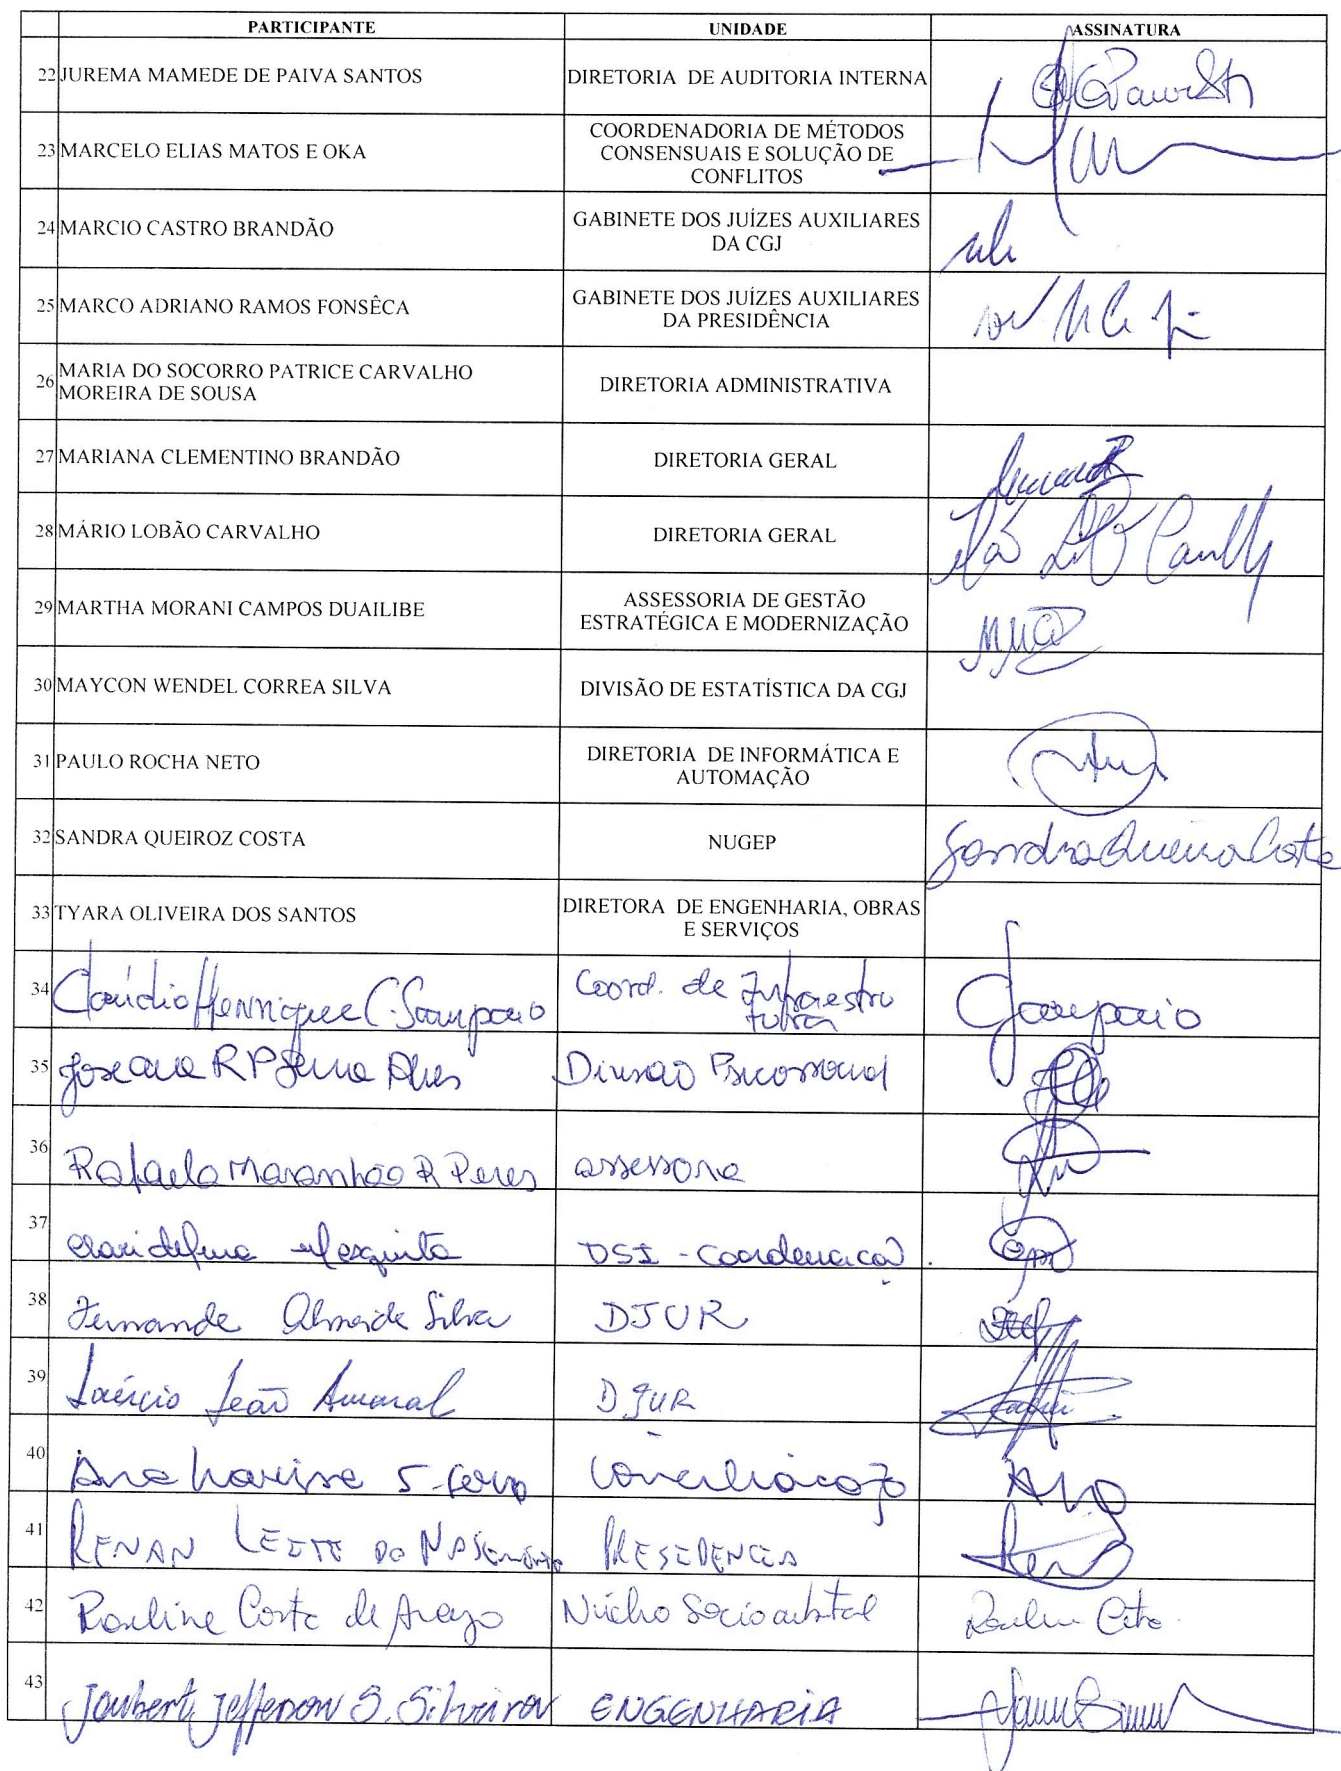 PARTICIPANTE UNIDADE ASSINATURA
22 JUREMA MAMEDE DE PAIVA SANTOS DIRETORIA DE AUDITORIA INTERNA
23 MARCELO ELIAS MATOS E OKA COORDENADORIA DE MÉTODOS
CONSENSUAIS E SOLUÇÃO DE
CONFLITOS
24 MARCIO CASTRO BRANDÃO GABINETE DOS JUÍZES AUXILIARES
DA CGJ
25 MARCO ADRIANO RAMOS FONSÊCA GABINETE DOS JUÍZES AUXILIARES
DA PRESIDÊNCIA
26 MARIA DO SOCORRO PATRICE CARVALHO
MOREIRA DE SOUSA DIRETORIA ADMINISTRATIVA
27 MARIANA CLEMENTINO BRANDÃO DIRETORIA GERAL
28 MÁRIO LOBÃO CARVALHO DIRETORIA GERAL
29 MARTHA MORANI CAMPOS DUAILIBE ASSESSORIA DE GESTÃO
ESTRATÉGICA E MODERNIZAÇÃO
30 MAYCON WENDEL CORREA SILVA DIVISÃO DE ESTATÍSTICA DA CGJ
31 PAULO ROCHA NETO DIRETORIA DE INFORMÁTICA E
AUTOMAÇÃO
32 SANDRA QUEIROZ COSTA NUGEP Sandra Queiroz Costa
33 TYARA OLIVEIRA DOS SANTOS DIRETORA DE ENGENHARIA, OBRAS
E SERVIÇOS
34 Claúdio Henrique C. Sampaio Coord. de Infraestru
tura Sampaio
35 Joseana R P Serra Alves Divisão Psicossocial
36 Rafaela Maranhão R Peres assessora
37 Mesquita DSI - Coordenação
38 Fernanda Almeida Silva DJUR
39 Laércio Leão Amaral DJUR
40 Ana Larissa S. Conciliação Ana
41 RENAN LEITE DO NASCIMENTO PRESIDENCIA
42 Costa de Araujo Núcleo Socioambiental
43 Joubert Jefferson S. Silveira ENGENHARIA